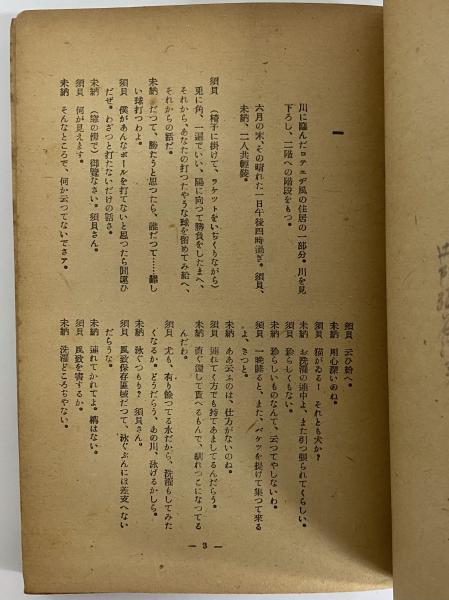 一
川に臨んだコテエヂ風の住居の一部分。川を見
下ろし、二階への階段をもつ。
六月の末、その晴れた一日午後四時過ぎ。須貝、
未納、二人共輕裝。
須貝 (椅子に掛けて、ラケットをいぢくりながら)
兎に角、一遍でいい、陽に向つて勝負をしたまへ、
それから、あなたの打つたやうな球を留めてみ給へ、
それからの話だ。
未納 だつて、勝たうと思つたら、誰だつて……難し
い球打つわよ。
須貝 僕があんなボールを打てないと思つたら間違ひ
だぜ。わざつと打たないだけの話さ。
未納 (窓の傍で)御覽なさい。須貝さん。
須貝 何が見えます。
未納 そんなところで、何か云つてないでさア。
須貝 云ひ給へ。
未納 用心深いのね。
須貝 猫がゐる! それとも犬か?
未納 お洗濯の連中よ、また引つ張られてくらしい。
須貝 珍らしくもない。
未納 珍らしいものなんて、云つてやしないわ。
須貝 一晩寢ると、また、バケツを提げて集つて來る
よ、きつと。
未納 ああ云ふのは、仕方がないのね。
須貝 連れてく方でも持てあましてるんだらう。
未納 直ぐ還して貰へるもんで、馴れつこになつてる
んだわ。
須貝 尤も、有り餘つてる水だから、洗濯もしてみた
くなるか。どうだらう、あの川、泳げるかしら。
未納 泳ぐつもり? 須貝さん。
須貝 風致保存區域だつて、泳ぐぶんには差支へない
だらうな。
未納 連れてかれてよ。構はない。
須貝 風致を害するか。
未納 洗濯どころぢやない。
— 3 —